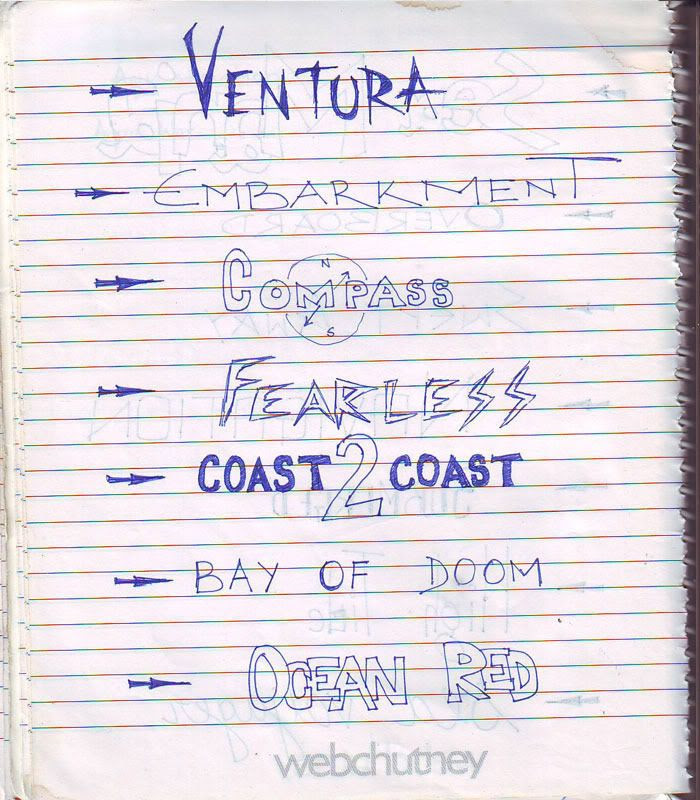 VENTURA
EMBARKMENT
COMPASS
N
S
FEARLESS
COAST 2 COAST
BAY OF DOOM
OCEAN RED
webchutney
OVERBOARD
High Tide